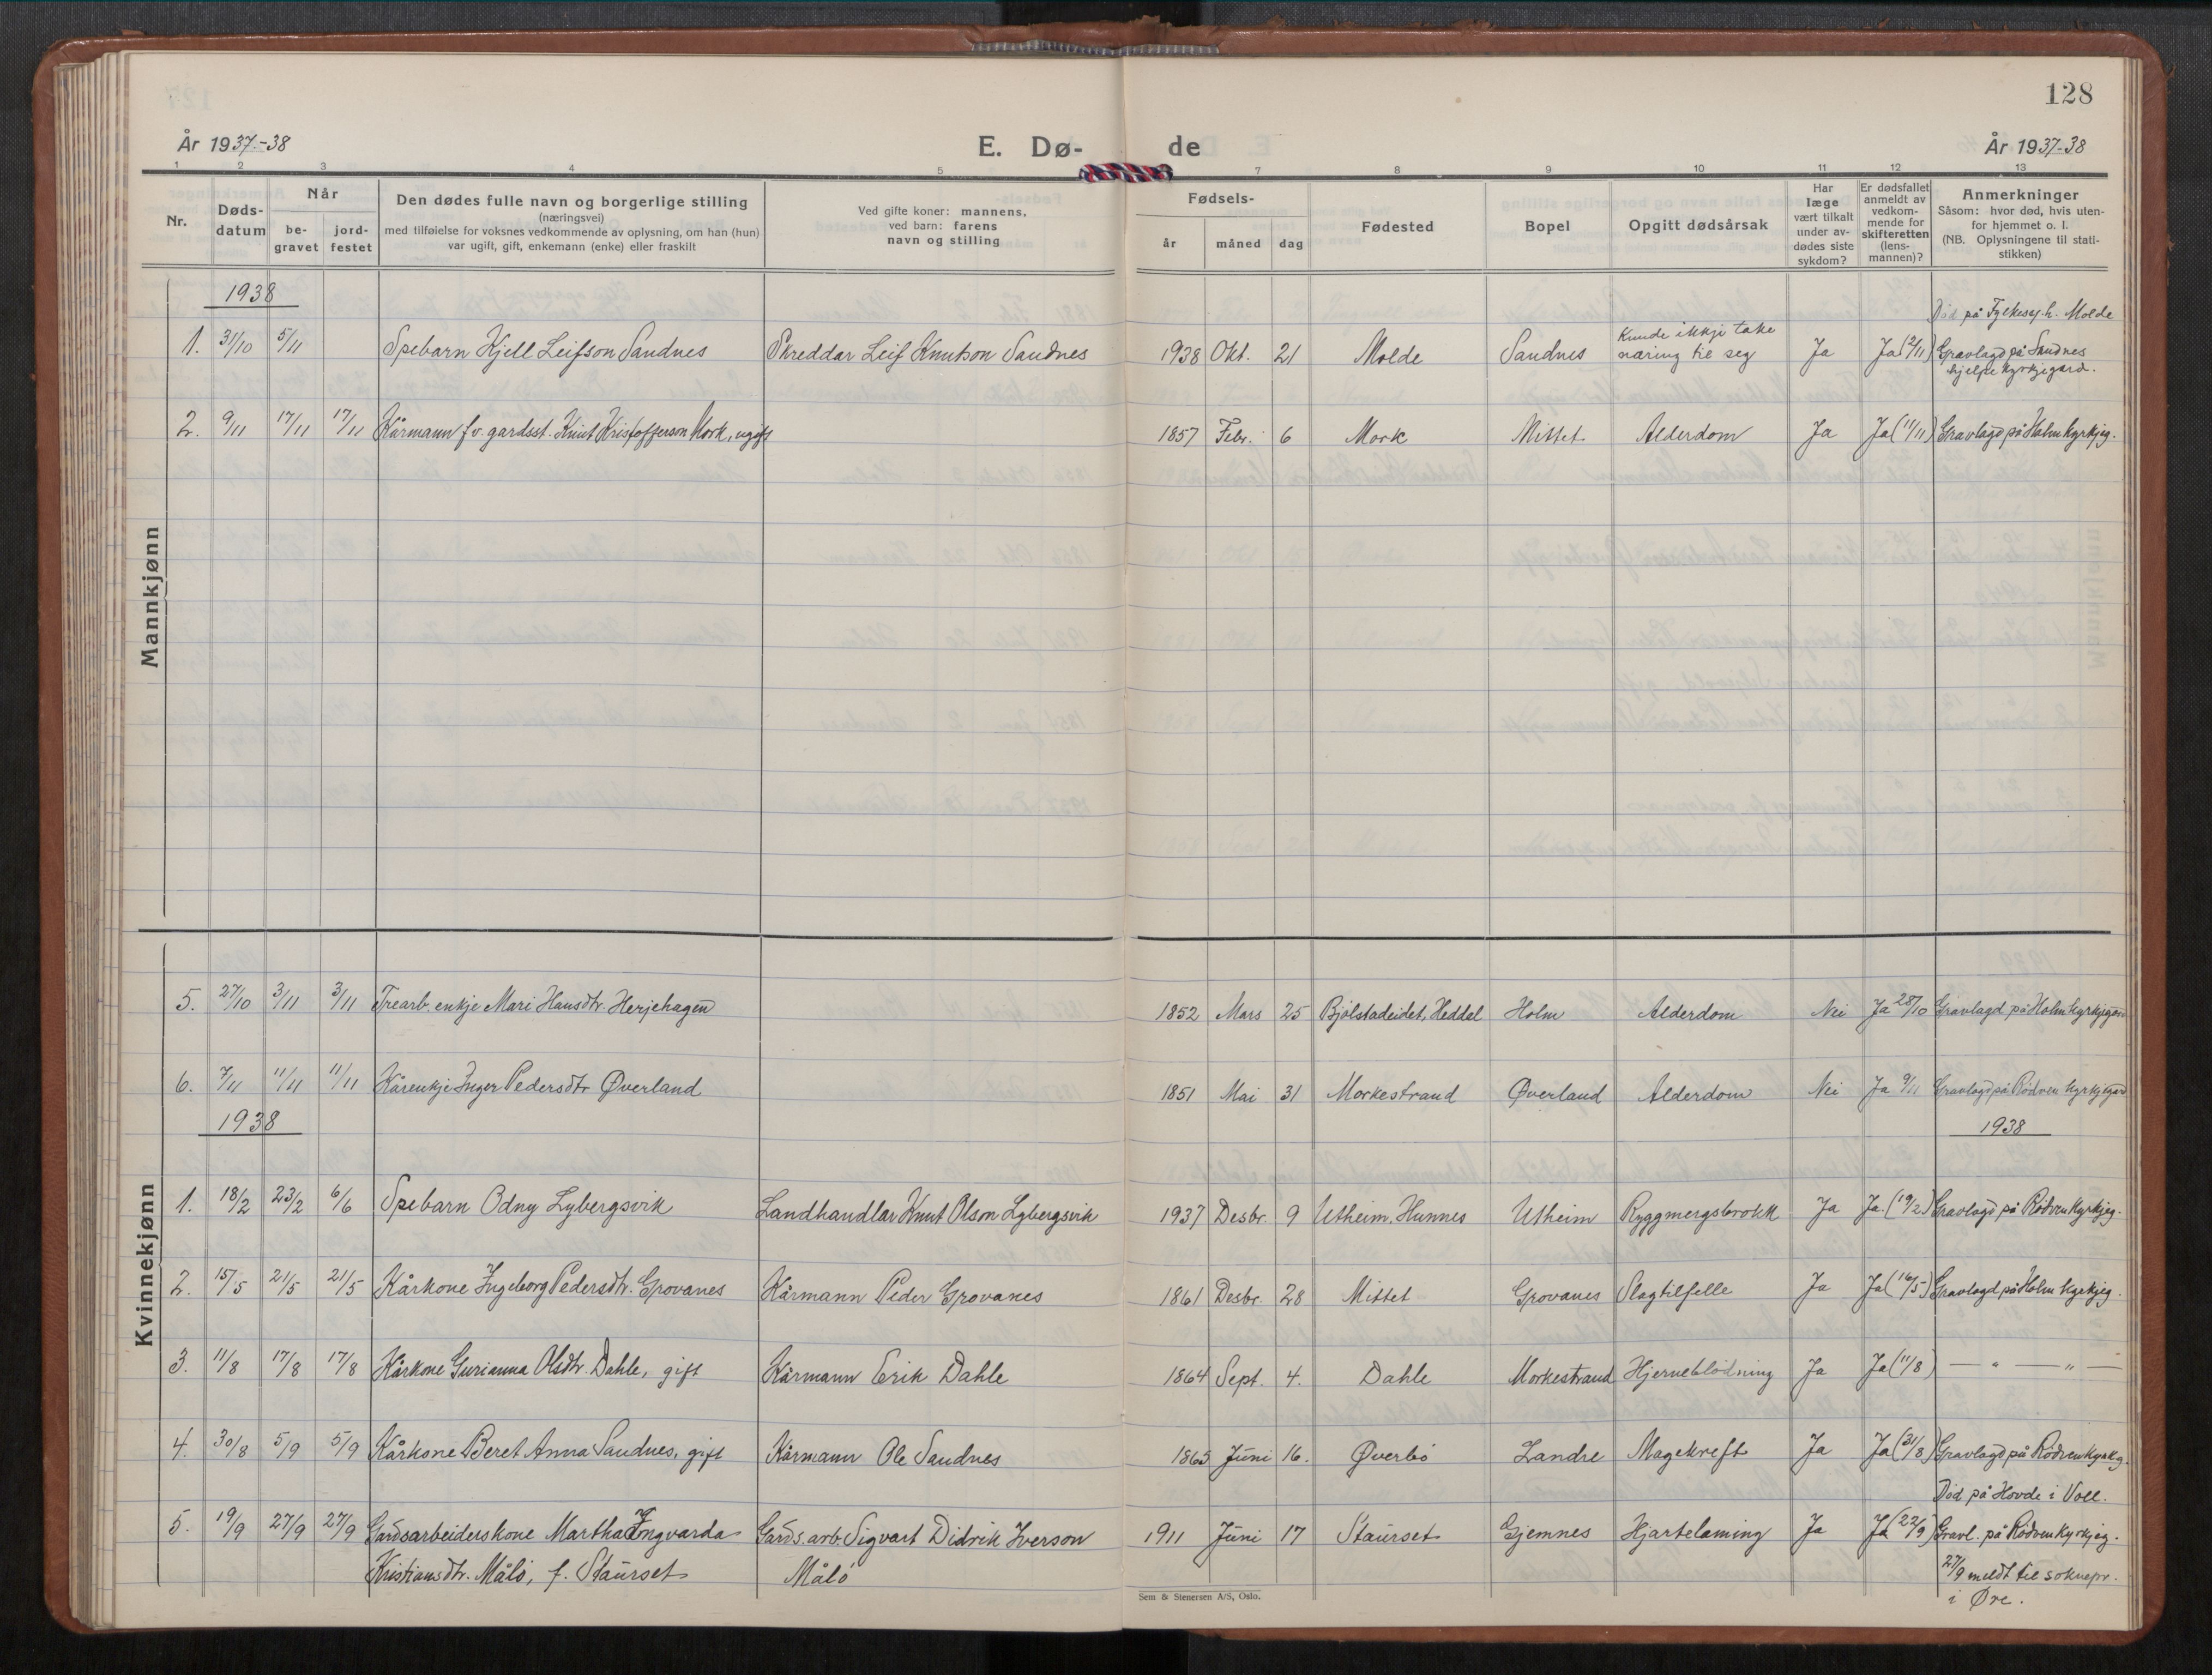 128
År 1937-38
E. Dø-
de
År 1937-38
1 2 3 4 5 7 8 9 10 11 12 13
Nr.
Døds-
datum
Når
be-
gravet
jord-
festet
Den dødes fulle navn og borgerlige stilling
(næringsvei)
med tilføielse for voksnes vedkommende av oplysning, om han (hun)
var ugift, gift, enkemann (enke) eller fraskilt
Ved gifte koner: mannens,
ved barn: farens
navn og stilling
Fødsels-
år
måned
dag
Fødested
Bopel
Opgitt dødsårsak
Har
læge
vært tilkalt
under av-
dødes siste
sykdom?
Er dødsfallet
anmeldt av
vedkom-
mende for
skifteretten
(lens-
mannen)?
Anmerkninger
Såsom: hvor død, hvis uten-
for hjemmet o. l.
(NB. Oplysningene til stati-
stikken)
Mannkjønn
1938
Død på Fylkessj.h. Molde
Kunde ikkje take
1. 31/10 5/11 Spebarn Kjell Leifson Sandnes Skreddar Leif Knutson Sandnes 1938 Okt. 21 Molde Sandnes næring til seg Ja Ja (2/11) Gravlagd på Sandnes
hjelpekyrkjegard.
2. 9/11 17/11 17/11 Kårmann fv. gardsst. Knut Kristofferson Mork, ugift 1857 Febr. 6 Mork Mittet Alderdom Ja Ja (11/11) Gravlagd på Holm kyrkjeg.
Kvinnekjønn
5. 27/10 3/11 3/11 Trearb. enkje Mari Hansdtr. Herjehagen 1852 Mars 25 Bjølstadeidet, Heddal Holm Alderdom Nei Ja 28/10 Gravlagd på Holm kyrkjegard
6. 7/11 11/11 11/11 Kårenkje Inger Pedersdtr Øverland 1851 Mai 31 Morkestrand Øverland Alderdom Nei Ja 9/11 Gravlagd på Rødven kyrkjegard
1938
1938
1. 18/2 23/2 6/6 Spebarn Odny Lybergsvik Landhandlar Knut Olson Lybergsvik 1937 Desbr. 9 Utheim, Hunnes Utheim Ryggmergsbrokk Ja Ja. (19/2) Gravlagd på Rødven kyrkjeg.
2. 15/5 21/5 21/5 Kårkone Ingeborg Pedersdtr. Grovanes Kårmann Peder Grovanes 1861 Desbr. 28 Mittet Grovanes Slagtilfelle Ja Ja (16/5) Gravlagd på Holm kyrkjeg.
3. 11/8 17/8 17/8 Kårkone Gurianna Olsdtr. Dahle, gift Kårmann Erik Dahle 1864 Sept. 4. Dahle Morkestrand Hjerneblødning Ja Ja (11/8) — " — " —
4. 30/8 5/9 5/9 Kårkone Beret Anna Sandnes, gift Kårmann Ole Sandnes 1865 Juni 16. Øverbø Landre Magekreft Ja Ja (31/8) Gravlagd på Rødven kyrkjeg.
Død på Hovde i Voll.
5. 19/9 27/9 27/9 Gardsarbeiderskone Martha Ingvarda Gards.arb. Sigvart Didrik Iverson 1911 Juni 17 Staurset Gjemnes Hjartelaming Ja Ja (22/9) Gravl. på Rødven kyrkjeg.
Kristiansdtr. Målø, f. Staurset Målø 27/9 meldt til soknepr.
i Øre.
Sem & Stenersen A/S, Oslo.